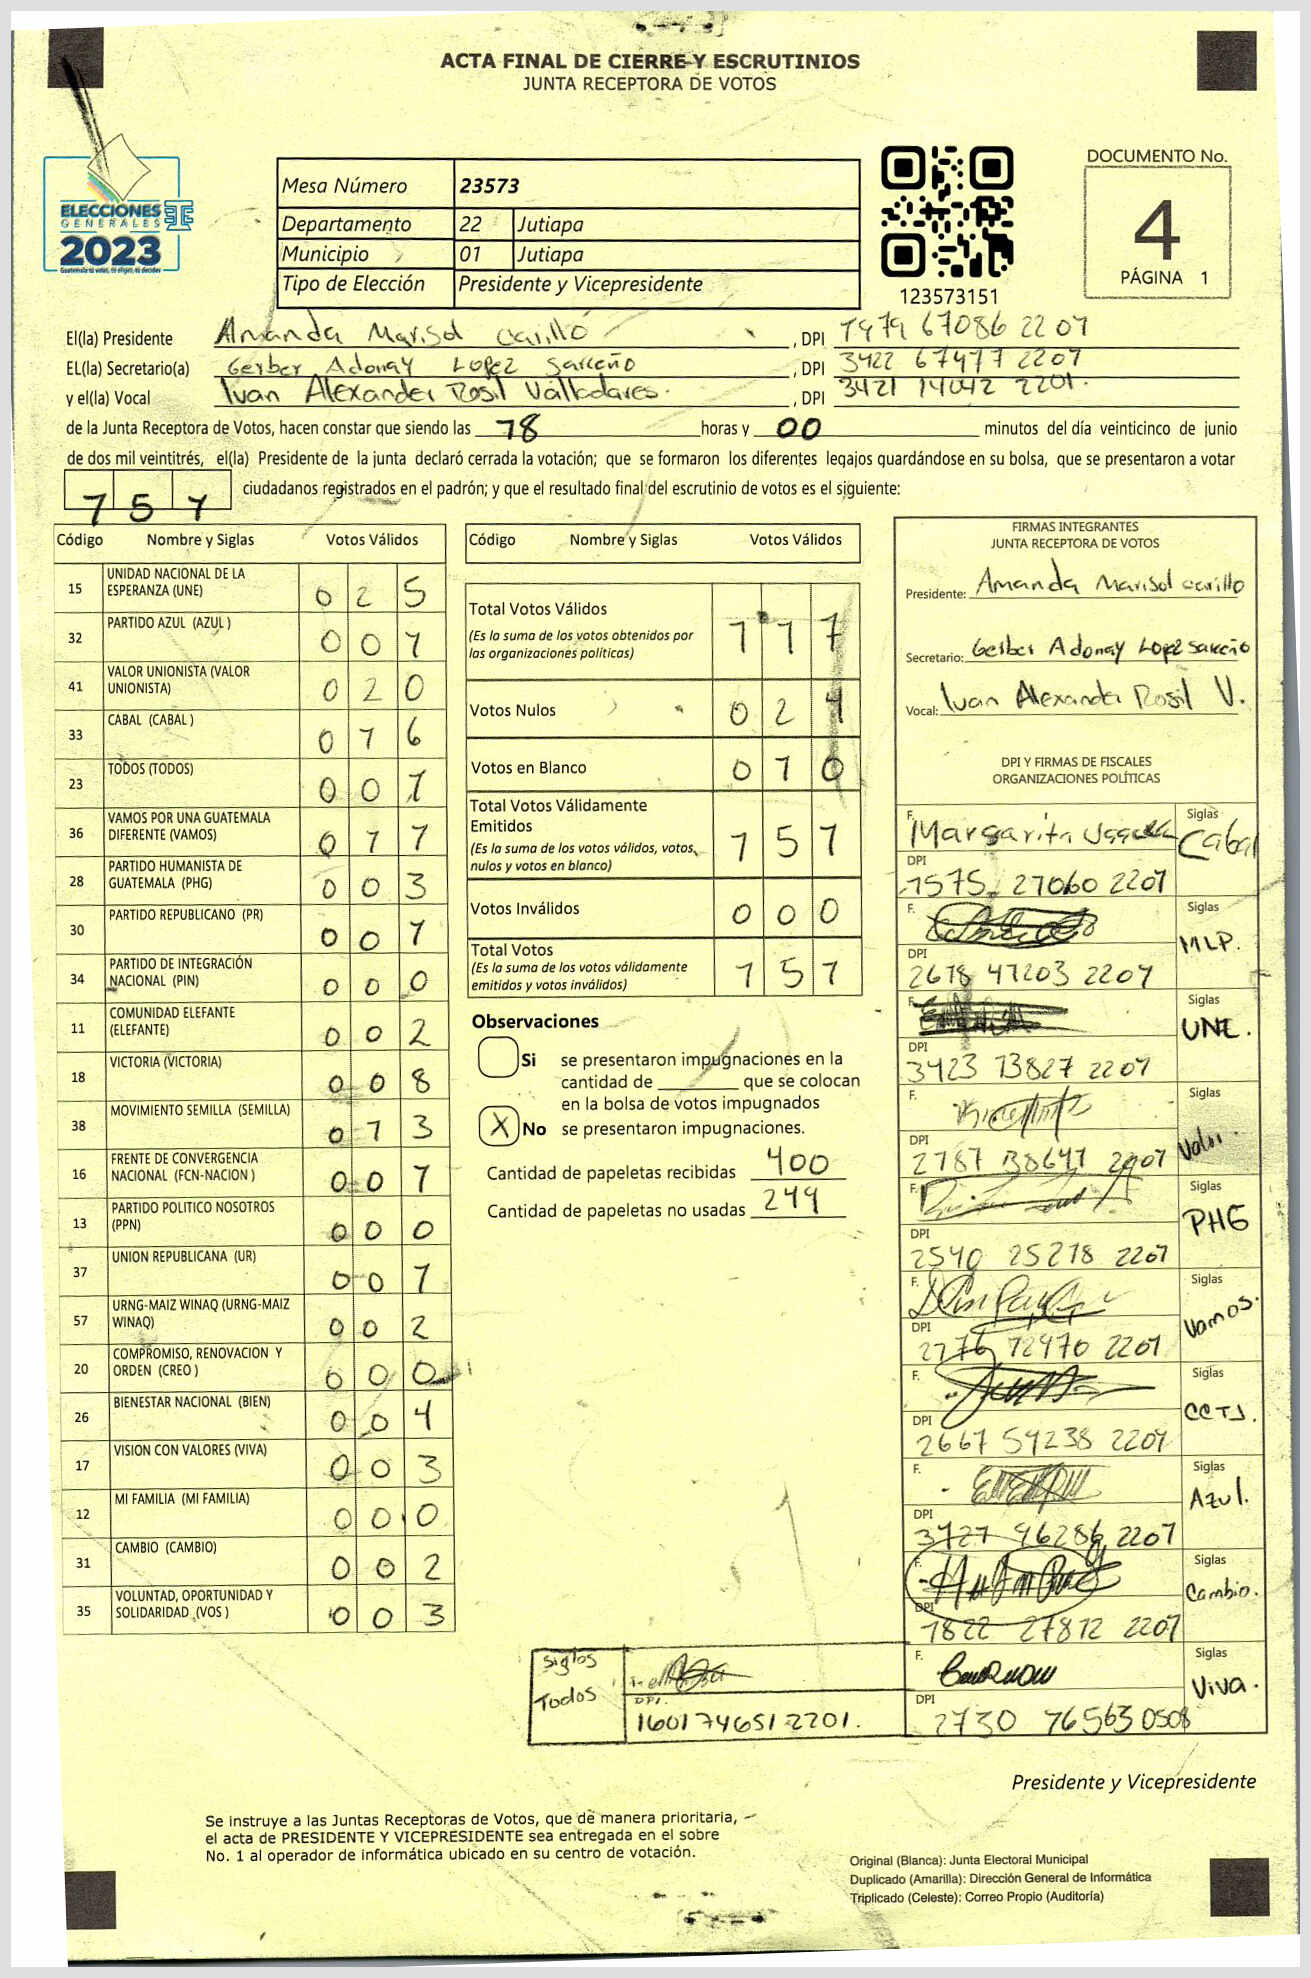 ACTA FINAL DE CIERRE Y ESCRUTINIOS
JUNTA RECEPTORA DE VOTOS
ELECCIONES
GENERALES
2023
Guatemala tú votas, tú eliges, tú decides
Mesa Número 23573
Departamento 22 Jutiapa
Municipio 01 Jutiapa
Tipo de Elección Presidente y Vicepresidente
123573151
DOCUMENTO No.
4
PÁGINA 1
El(la) Presidente Amanda Marisol Carillo, DPI 1979 67086 2201
EL(la) Secretario(a) Gerber Adonay Lopez Sarceño, DPI 3422 67477 2201
y el(la) Vocal Ivan Alexander Rosil Valladares., DPI 3421 14042 2201.
de la Junta Receptora de Votos, hacen constar que siendo las 18 horas y 00 minutos del día veinticinco de junio
de dos mil veintitrés, el(la) Presidente de la junta declaró cerrada la votación; que se formaron los diferentes legajos guardándose en su bolsa, que se presentaron a votar
151 ciudadanos registrados en el padrón; y que el resultado final del escrutinio de votos es el siguiente:
Código Nombre y Siglas Votos Válidos
15 UNIDAD NACIONAL DE LA ESPERANZA (UNE) 025
32 PARTIDO AZUL (AZUL ) 001
41 VALOR UNIONISTA (VALOR UNIONISTA) 020
33 CABAL (CABAL ) 016
23 TODOS (TODOS) 001
36 VAMOS POR UNA GUATEMALA DIFERENTE (VAMOS) 011
28 PARTIDO HUMANISTA DE GUATEMALA (PHG) 003
30 PARTIDO REPUBLICANO (PR) 001
34 PARTIDO DE INTEGRACIÓN NACIONAL (PIN) 000
11 COMUNIDAD ELEFANTE (ELEFANTE) 002
18 VICTORIA (VICTORIA) 008
38 MOVIMIENTO SEMILLA (SEMILLA) 013
16 FRENTE DE CONVERGENCIA NACIONAL (FCN-NACION ) 001
13 PARTIDO POLITICO NOSOTROS (PPN) 000
37 UNION REPUBLICANA (UR) 001
57 URNG-MAIZ WINAQ (URNG-MAIZ WINAQ) 002
20 COMPROMISO, RENOVACION Y ORDEN (CREO ) 000
26 BIENESTAR NACIONAL (BIEN) 004
17 VISION CON VALORES (VIVA) 003
12 MI FAMILIA (MI FAMILIA) 000
31 CAMBIO (CAMBIO) 002
35 VOLUNTAD, OPORTUNIDAD Y SOLIDARIDAD (VOS ) 003
Código Nombre y Siglas Votos Válidos
Total Votos Válidos 117
(Es la suma de los votos obtenidos por
las organizaciones políticas)
Votos Nulos 024
Votos en Blanco 010
Total Votos Válidamente
Emitidos 151
(Es la suma de los votos válidos, votos
nulos y votos en blanco)
Votos Inválidos 000
Total Votos 151
(Es la suma de los votos válidamente
emitidos y votos inválidos)
Observaciones
Si se presentaron impugnaciones en la
cantidad de ________ que se colocan
en la bolsa de votos impugnados
X No se presentaron impugnaciones.
Cantidad de papeletas recibidas 400
Cantidad de papeletas no usadas 249
FIRMAS INTEGRANTES
JUNTA RECEPTORA DE VOTOS
Presidente: Amanda Marisol carillo
Secretario: Gerber Adonay Lopez Sarceño
Vocal: Ivan Alexander Rosil V.
DPI Y FIRMAS DE FISCALES
ORGANIZACIONES POLÍTICAS
F. Margarita
Siglas Cabal
DPI 1575 27060 2201
F.
Siglas MLP.
DPI 2678 47203 2201
F.
Siglas UNE.
DPI 3423 13827 2201
F.
Siglas Valor.
DPI 2787 38647 2201
F.
Siglas PHG
DPI 2540 25278 2201
F.
Siglas Vamos.
DPI 2776 72970 2201
F.
Siglas
DPI 2667 59238 2201
F.
Siglas Azul.
DPI 3427 96286 2201
F.
Siglas Cambio.
DPI 1822 27812 2201
F.
Siglas Viva.
DPI 2730 76563 0508
Siglas
Todos
DPI.
1601746512201.
Presidente y Vicepresidente
Se instruye a las Juntas Receptoras de Votos, que de manera prioritaria,
el acta de PRESIDENTE Y VICEPRESIDENTE sea entregada en el sobre
No. 1 al operador de informática ubicado en su centro de votación.
Original (Blanca): Junta Electoral Municipal
Duplicado (Amarilla): Dirección General de Informática
Triplicado (Celeste): Correo Propio (Auditoría)